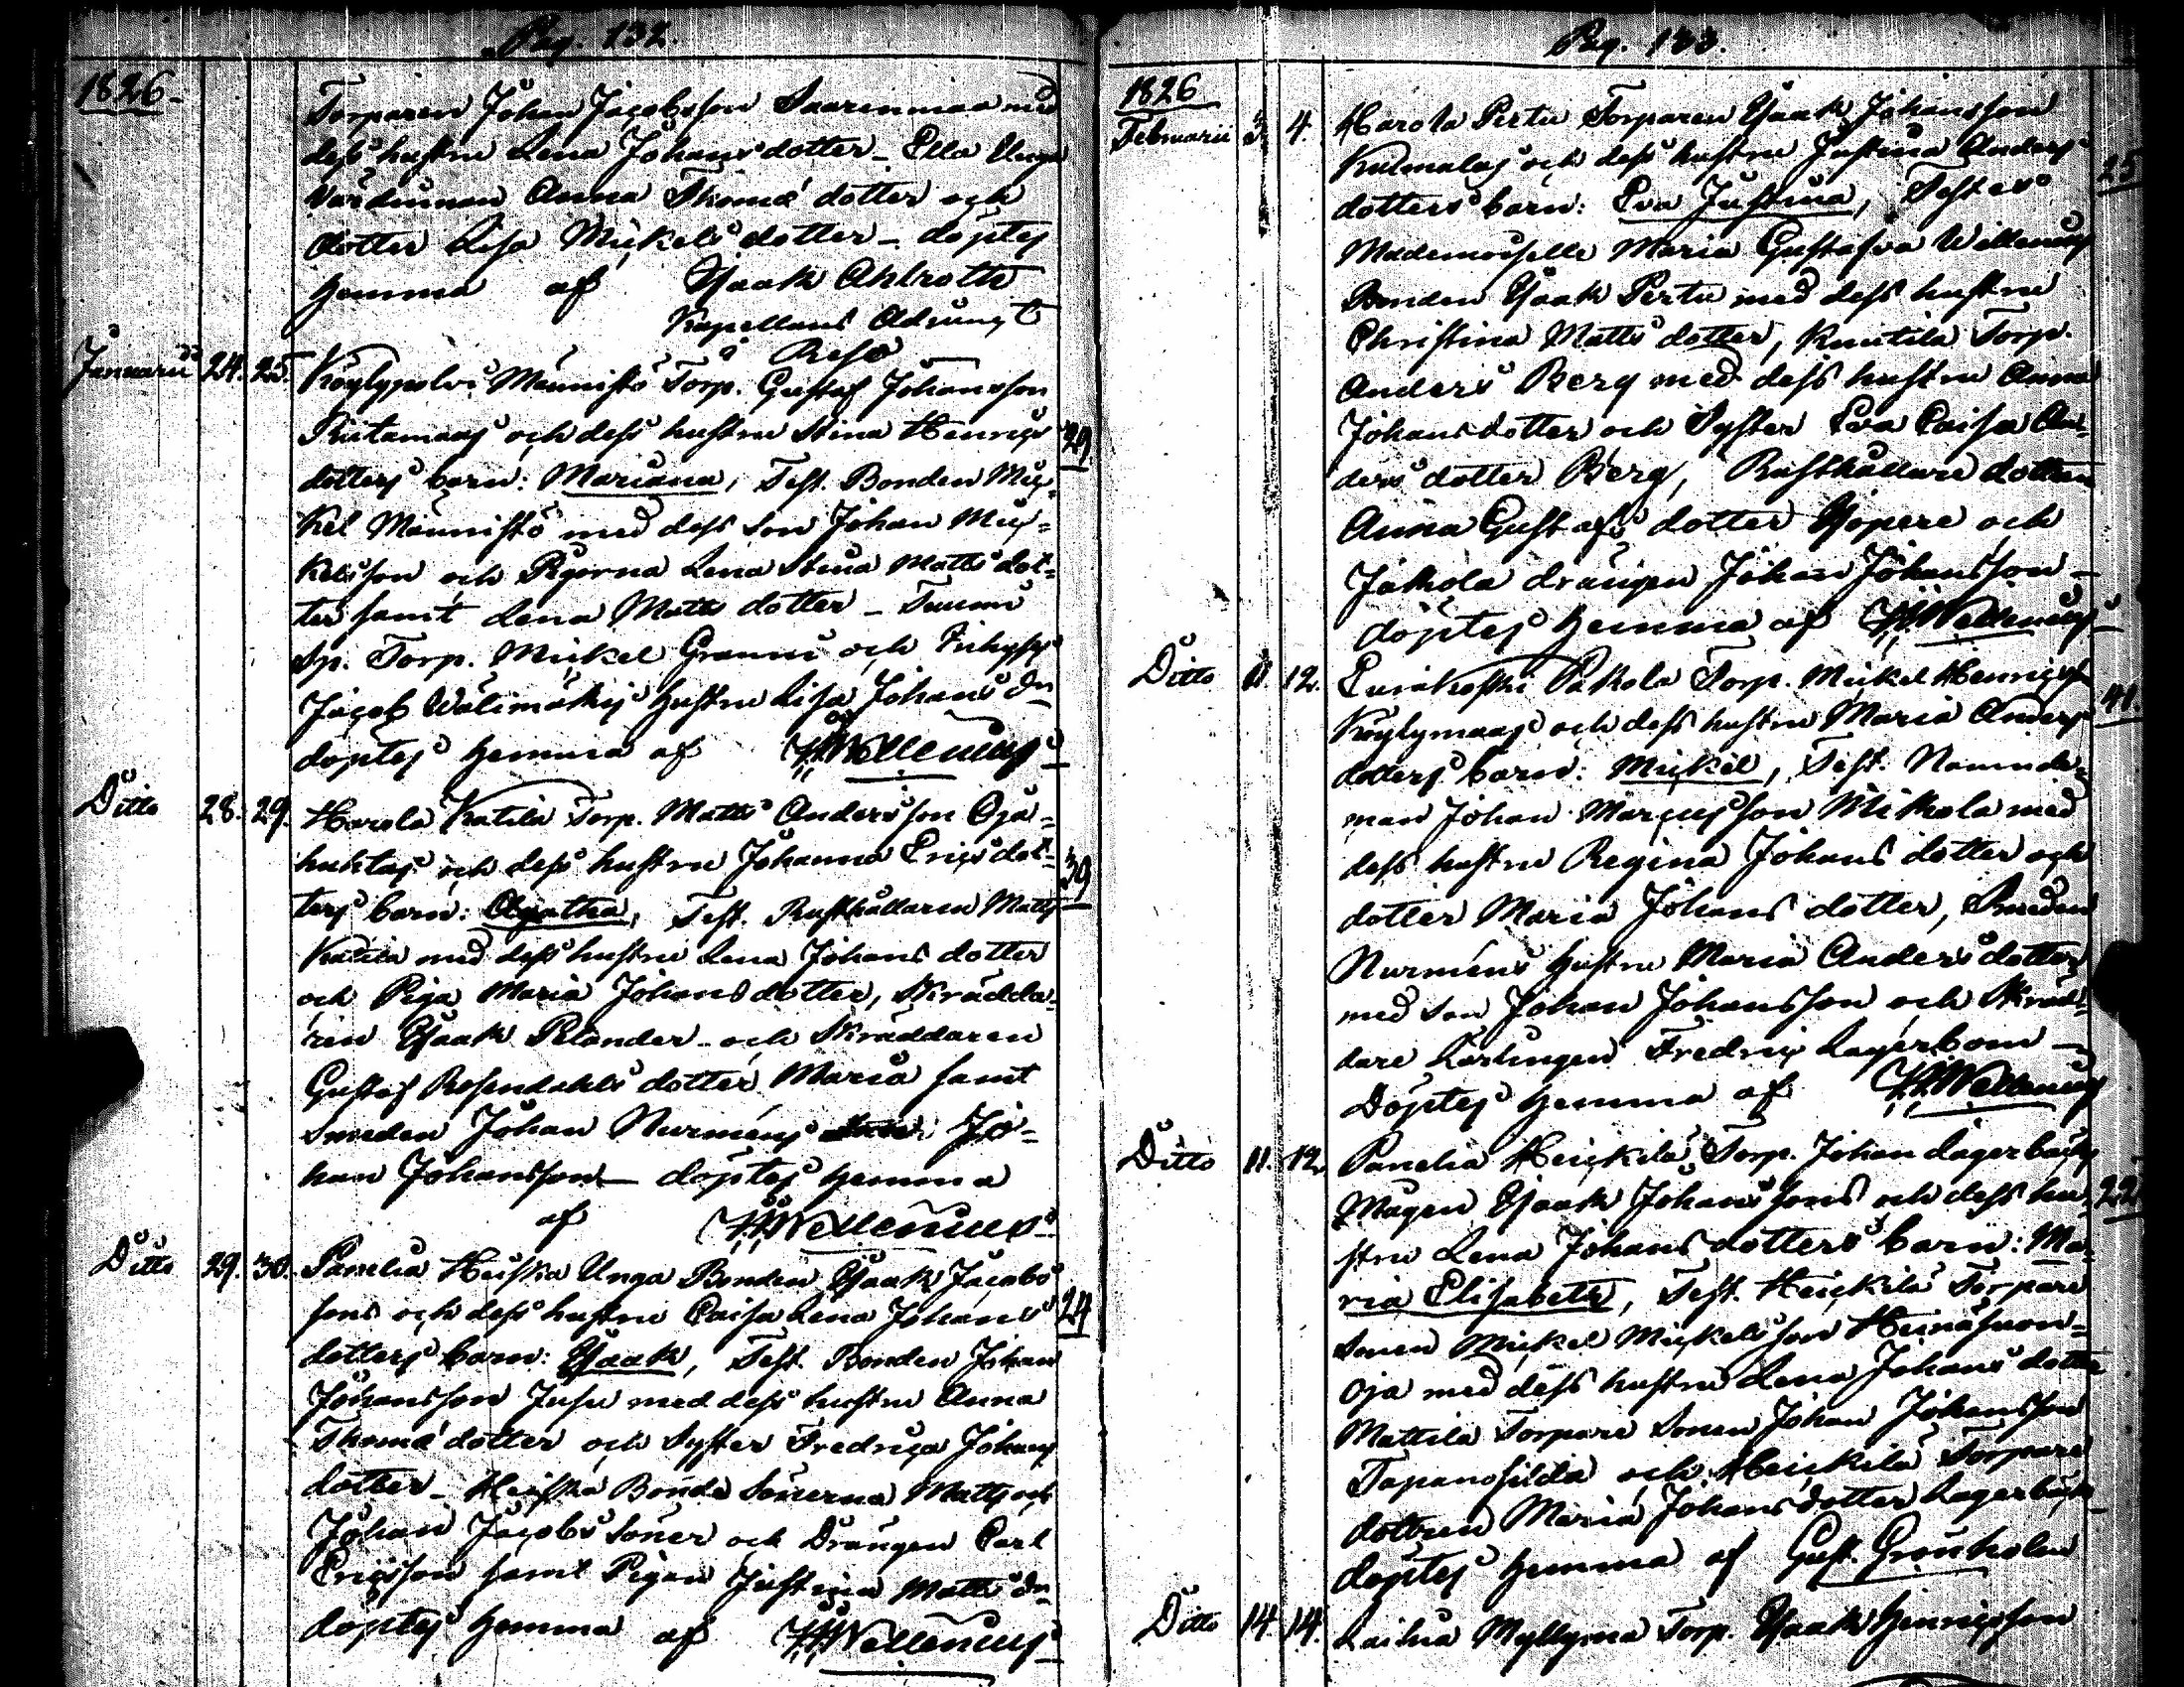 Pag. 132.
1826.
Torparen Johan Jacobsson Saarenmaa med
dess hustru Lena Johansdotter - Ella Unga
Värdinnan Anna Thomædotter och
dotter Lisa Mickelsdotter - döptes
hemma af Isaak Ahlroth
Kapellans Adjungt
å Resa
Januarii 24. 25. Köylypolvi Männistö Torp. Gustaf Johansson
Riutamaas och dess hustru Stina Henrics
dotters barn: Mariana, Test. Bonden Mic- 29
kel Männistö med dess son Johan Mic-
kelsson och Pigorna Lena Stina Matts dot-
ter samt Lena Matts dotter - Tuomi
Sp. Torp. Mickel Grann och Inhyses
Jacob Välimäkis hustru Lisa Johans dr
döptes hemma af Wellenius
Ditto 28. 29. Harola Katila Torp. Matts Andersson Oja-
huhtas och dess hustru Johanna Erics dot-
ters barn: Agatha, Test. Rusthållaren Matts 39
Katila med dess hustru Lena Johans dotter
och Piga Maria Johansdotter, Skrädda-
ren Isaak Pelander och Skräddaren
Gustaf Rosendahls dotter Maria samt
Smeden Johan Nurméns Jo-
han Johansson - döptes hemma
af Wellenius
Ditto 29. 30. Panelia Heiska Unga Bonden Isaak Jacobs
sons och dess hustru Caisa Lena Johans 24
dotters barn: Isaak, Test. Bonden Johan
Johansson Jusu med dess hustru Anna
Thomædotter och Syster Fredrica Johans
dotter - Heiska Bonde Sönerna Matts och
Johan Jacobs Söner och Drängen Carl
Ericsson samt Pigan Justina Matts dr
döptes hemma af Wellenius
Pag. 133.
1826
Februarii 3 4. Harola Pertu Torparen Isaak Johansson
Kulmalas och dess hustru Justina Anders 25
dotters barn: Eva Justina, Testes
Mademoiselle Maria Gustafva Wellenius
Bonden Isaak Pertu med dess hustru
Christina Matts dotter, Knutila Torp.
Anders Berg med dess hustru Anna
Johansdotter och Syster Eva Caisa An-
ders dotter Berg, Rusthållare dottren
Anna Gustafs dotter Isopere och
Jakola drängen Johan Johansson -
döptes hemma af Wellenius
Ditto 11. 12. Eurakoski Pakola Torp. Mickel Henricss
Köylymaas och dess hustru Maria Anders 41.
dotters barn: Mickel, Test. Nämnde-
man Johan Marcusson Mikola med
dess hustru Regina Johans dotter och
dotter Maria Johans dotter, Smeden
Nurméns hustru Maria Anders dotter
med son Johan Johansson och Skräd-
dare Lärlingen Fredric Lagerbom -
Döptes hemma af Wellenius
Ditto 11. 12. Panelia Heickilä Torp. Johan Lagerbäcks
Mågen Isaak Johanssons och dess hu- 22
stru Lena Johans dotters barn: Ma-
ria Elisabeth, Test. Heickilä Torpare
sonen Mickel Mickelsson Heinäsuon-
oja med dess hustru Lena Johans dotter
Mattila Torpare Sonen Johan Johansson
Tapanosilda och Heickilä Torpare
dottren Maria Johansdotter Lagerbäck
döptes hemma af Gust. Grönholm
Ditto 14. 14. Laihia Myllymaa Torp. Isaak Henricsson